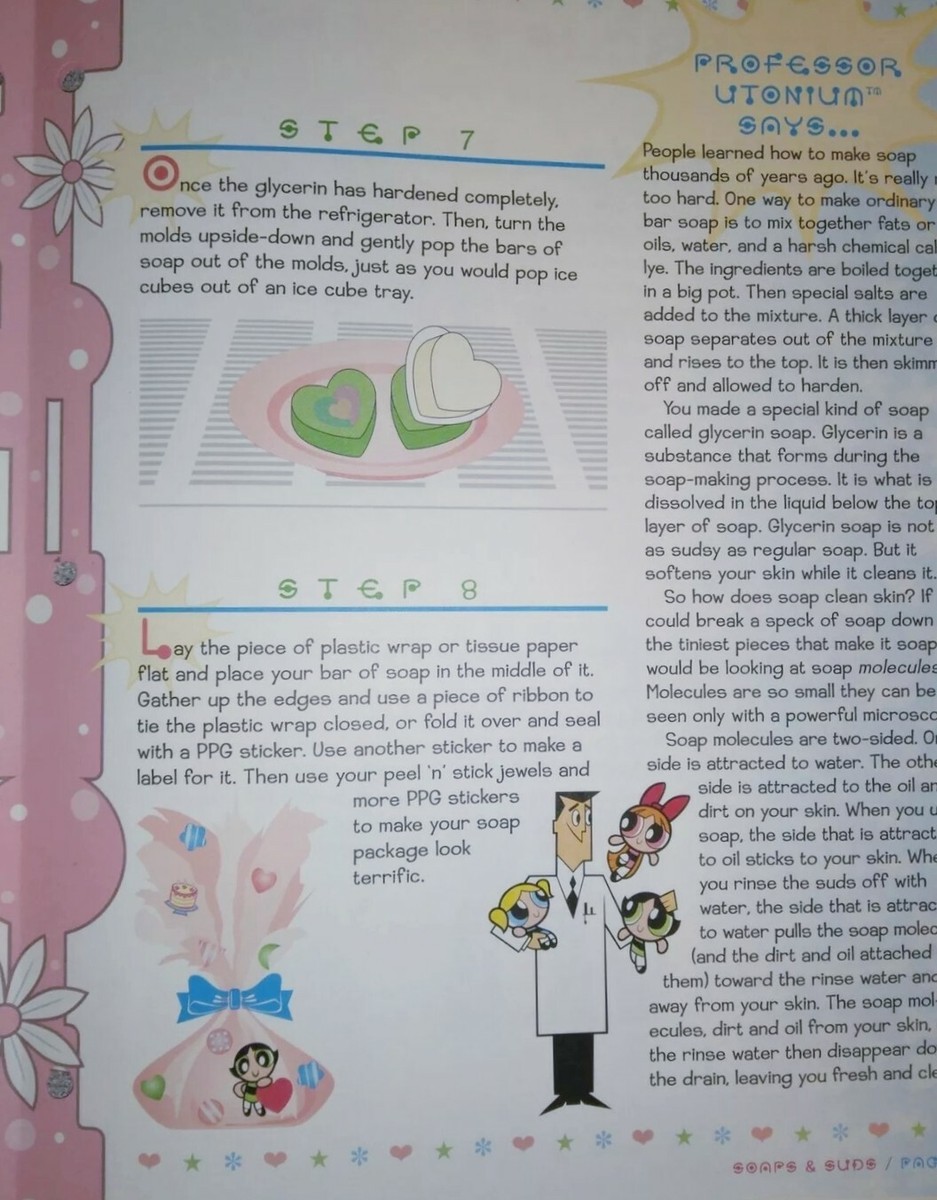 STEP 7
Once the glycerin has hardened completely,
remove it from the refrigerator. Then, turn the
molds upside-down and gently pop the bars of
soap out of the molds, just as you would pop ice
cubes out of an ice cube tray.
STEP 8
Lay the piece of plastic wrap or tissue paper
flat and place your bar of soap in the middle of it.
Gather up the edges and use a piece of ribbon to
tie the plastic wrap closed, or fold it over and seal
with a PPG sticker. Use another sticker to make a
label for it. Then use your peel 'n' stick jewels and
more PPG stickers
to make your soap
package look
terrific.
PROFESSOR
UTONIUM™
SAYS...
People learned how to make soap
thousands of years ago. It's really
too hard. One way to make ordinary
bar soap is to mix together fats or
oils, water, and a harsh chemical
lye. The ingredients are boiled
in a big pot. Then special salts are
added to the mixture. A thick layer
soap separates out of the mixture
and rises to the top. It is then
off and allowed to harden.
You made a special kind of soap
called glycerin soap. Glycerin is a
substance that forms during the
soap-making process. It is what is
dissolved in the liquid below the
layer of soap. Glycerin soap is not
as sudsy as regular soap. But it
softens your skin while it cleans it.
So how does soap clean skin? If
could break a speck of soap down
the tiniest pieces that make it soap
would be looking at soap molecules
Molecules are so small they can be
seen only with a powerful
Soap molecules are two-sided.
side is attracted to water. The
side is attracted to the oil
dirt on your skin. When you
soap, the side that is
to oil sticks to your skin.
you rinse the suds off with
water, the side that is
to water pulls the soap
(and the dirt and oil attached
them) toward the rinse water
away from your skin. The soap mol-
ecules, dirt and oil from your skin,
the rinse water then disappear
the drain, leaving you fresh and
SOAPS & SUDS /